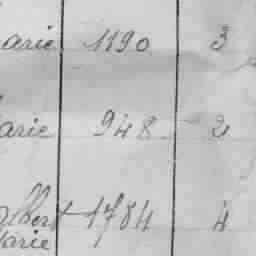 arie 1190 3
arie 948 2
bert 1784 4
arie